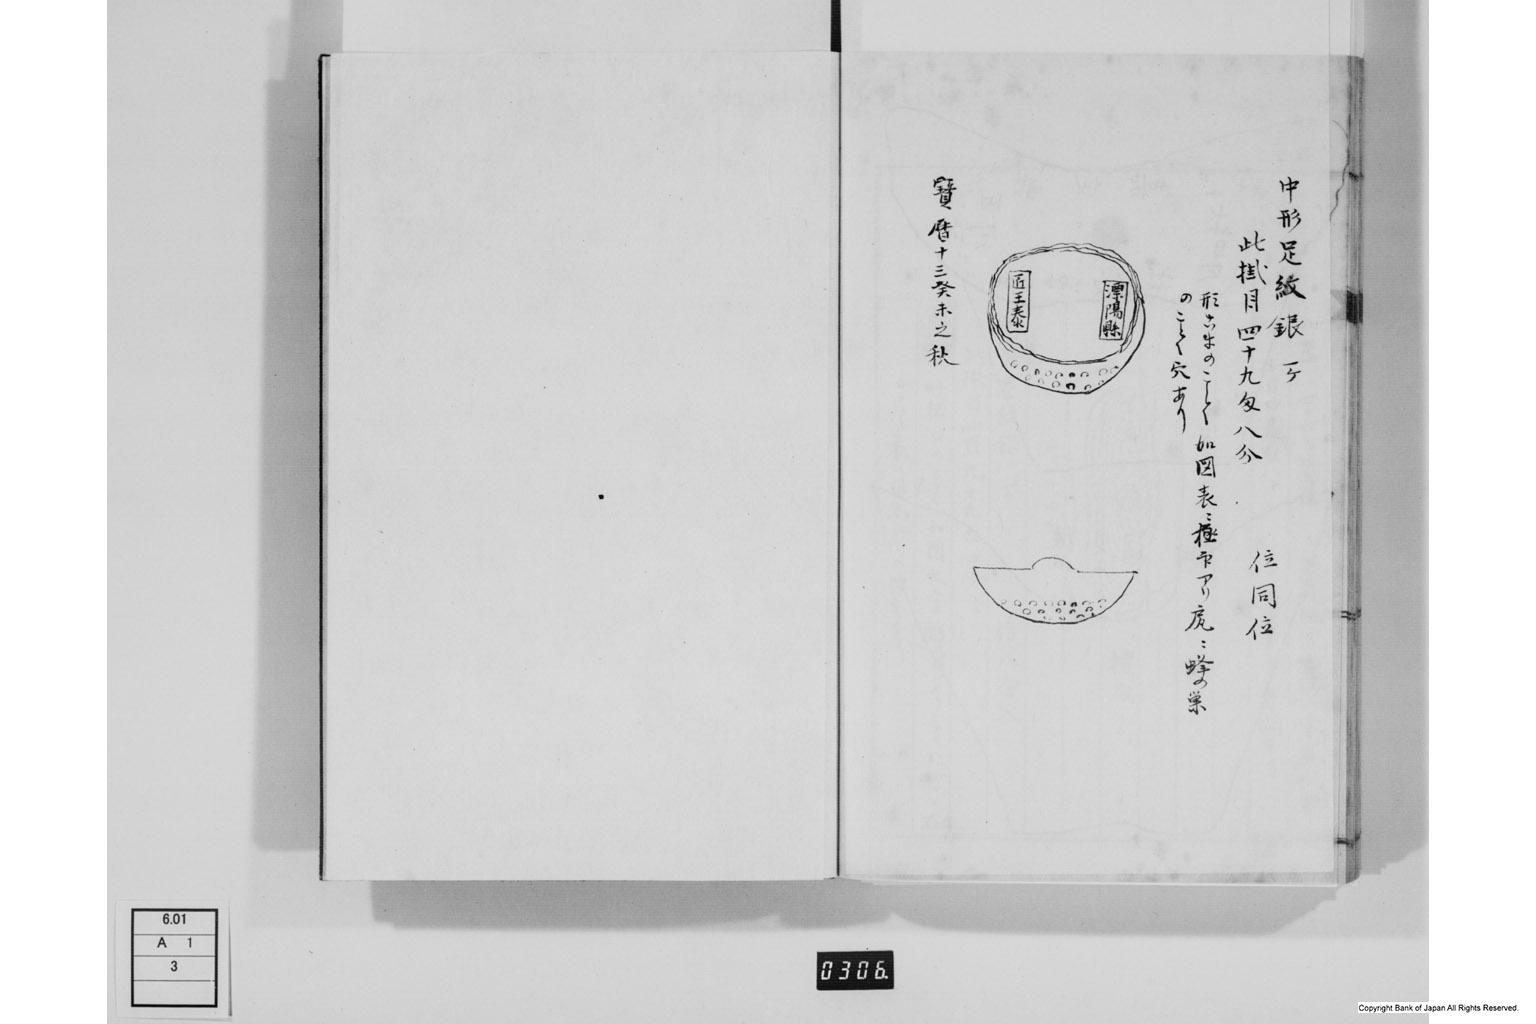 中形足紋銀 一ケ
此掛目四十九匁八分 位同位
形によりのことく加図表ニ極印アリ底ニ蜂の巣
のことく穴あり
溧陽縣
匠王泰
寶暦十三癸未之秋
6.01
A 1
3
0306.
Copyright Bank of Japan All Rights Reserved.